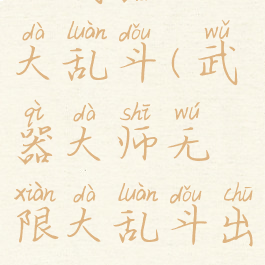 dà luàn dǒu wǔ
大乱斗(武
qì dà shī wú
器大师无
xiàn dà luàn dǒu chū
限大乱斗出